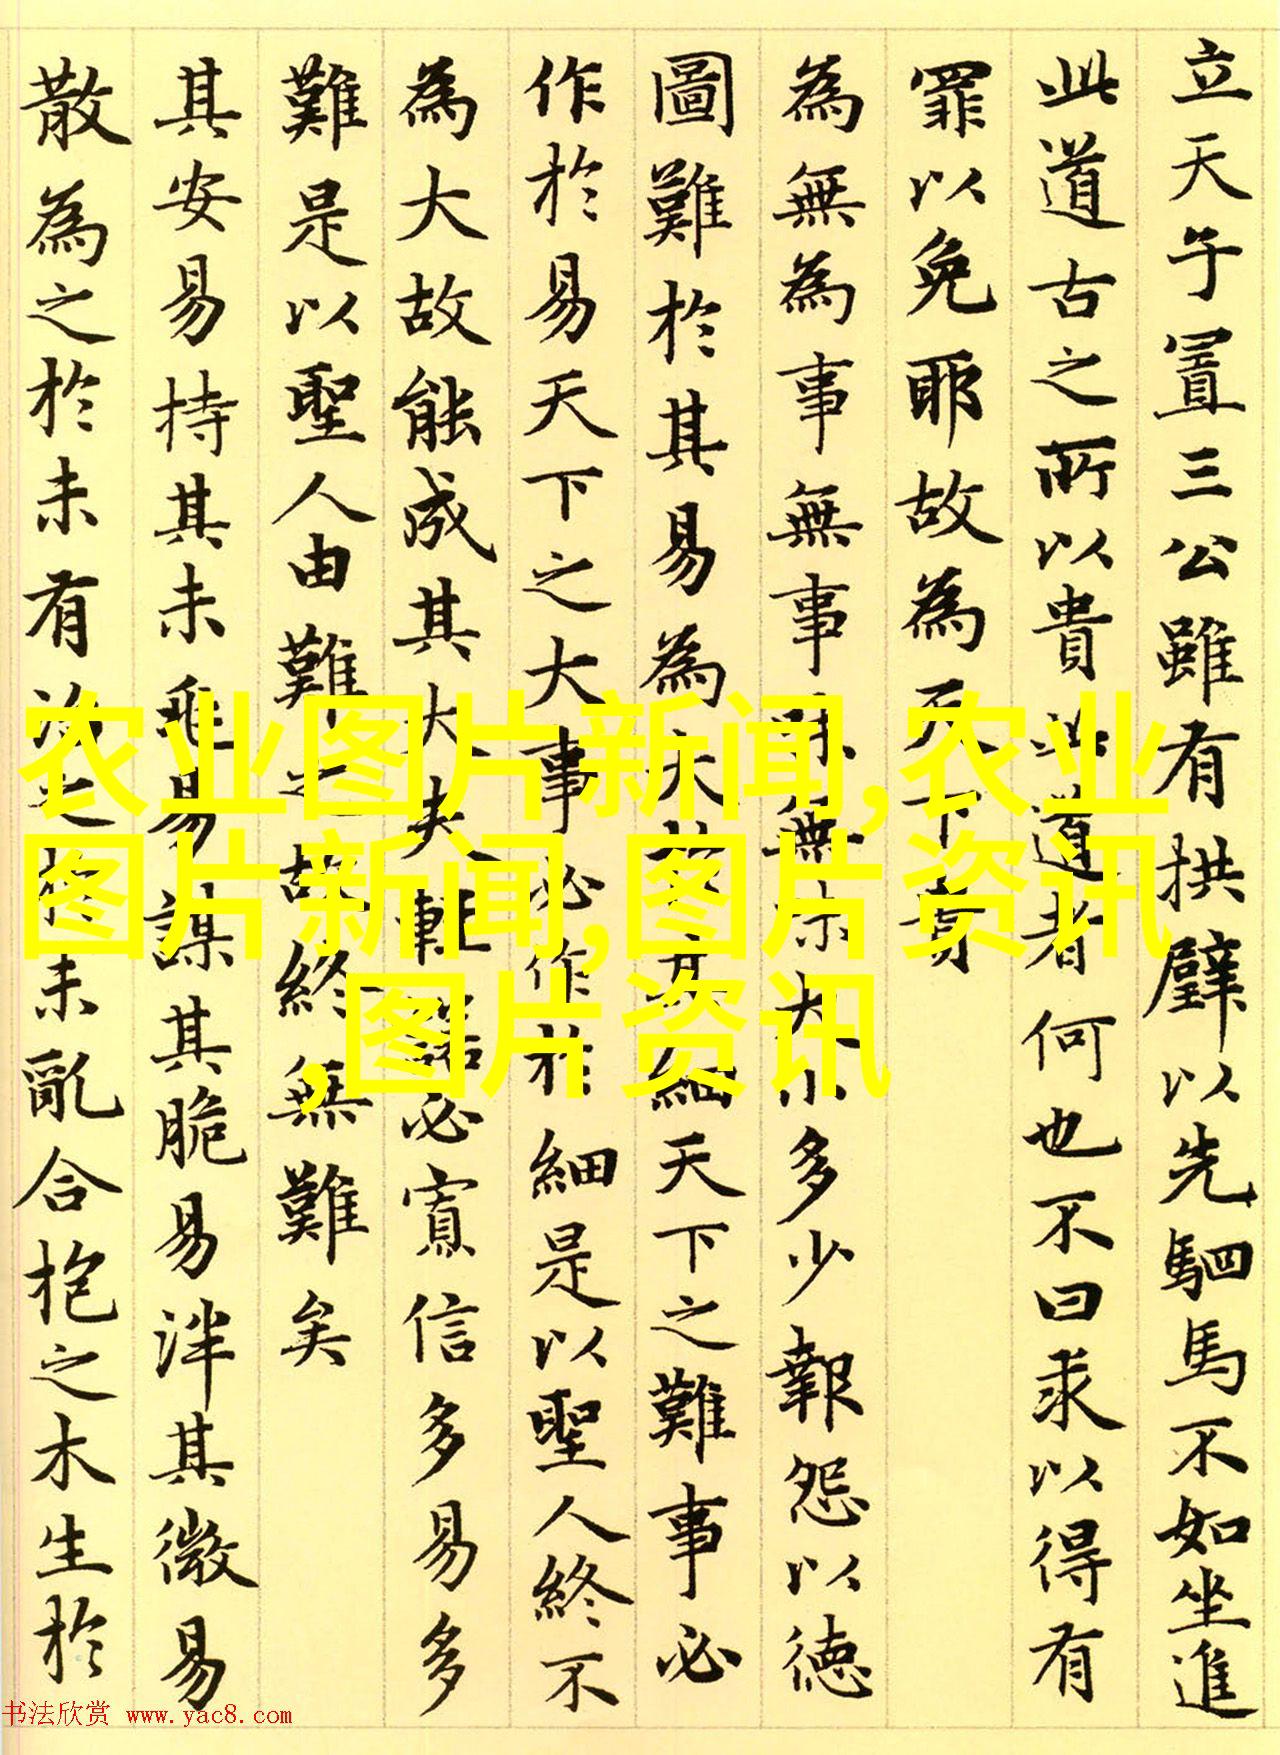 立天子置三公雖有拱璧以先駟馬不如坐進
此道古之所以貴此道者何也不曰求以得有
罪以免耶故為天下貴
為無為事無事味無味大小多少報怨以德
圖難於其易為大細天下之難事必
作於易天下之大事必作於細是以聖人終不
為大故能成其大夫輕諾必寡信多易多
難是以聖人由難之故終無難矣
其安易持其未兆易謀其脆易泮其微易
散為之於未有治之於未亂合抱之木生於
农业图片新闻,农业
图片新闻,图片资讯
,图片资讯
书法欣赏 www.yac8.com